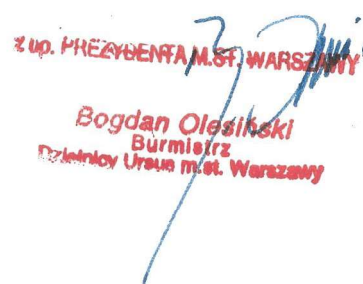 z up. PREZYDENTA M.ST. WARSZAWY
Bogdan Olesiński
Burmistrz
Dzielnicy Ursus m.st. Warszawy